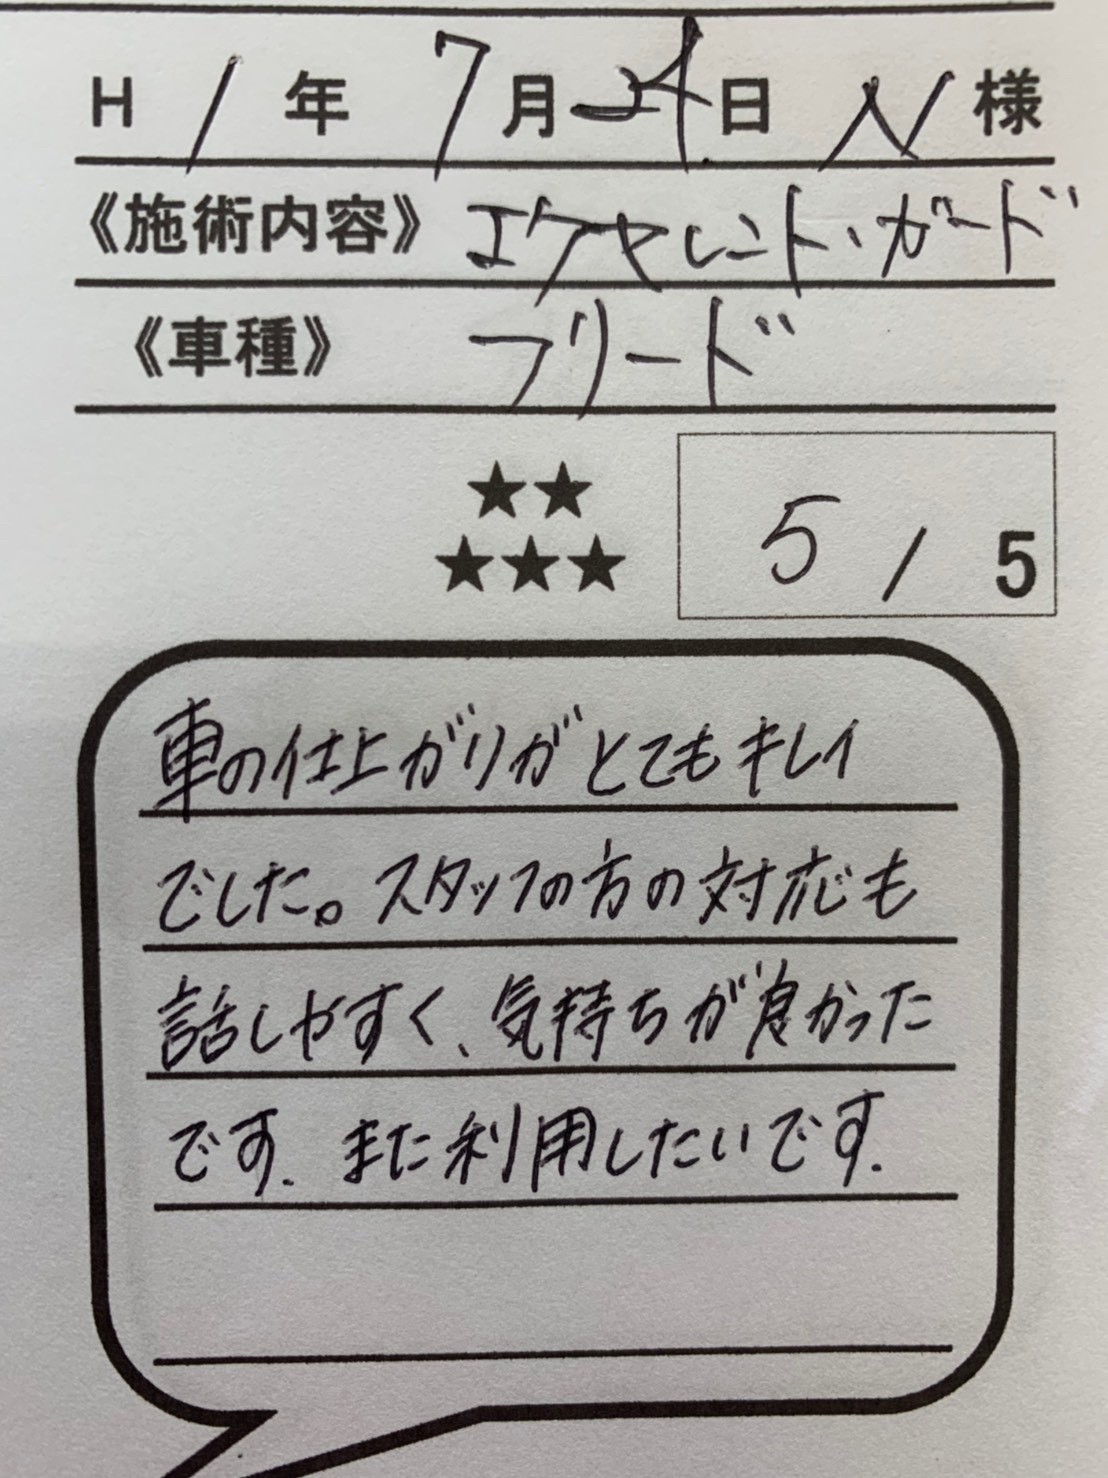 H 1 年 7 月 24 日 N 様
《施術内容》 エクセレント・ガード
《車種》 フリード
★★
★★★
5 / 5
車の仕上がりがとてもキレイ
でした。スタッフの方の対応も
話しやすく、気持ちが良かった
です。また利用したいです。